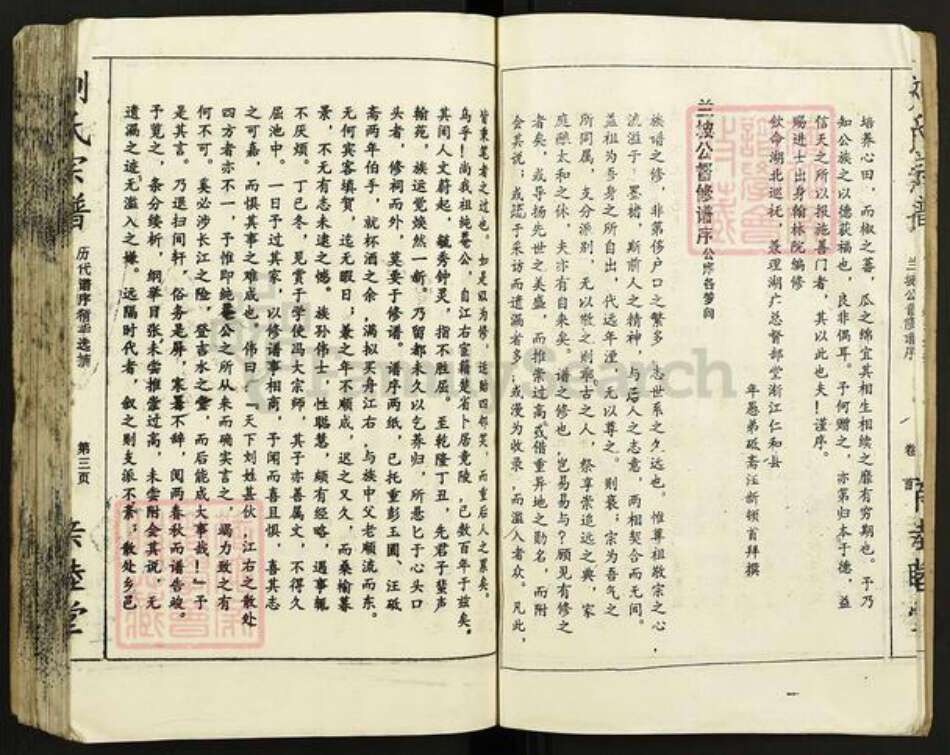 培养心田，而椒之蕃，瓜之绵宜其相生相续之靡有穷期也。予乃
如公族之以德获福也，良非偶耳。予何赠之，亦第归本于德，益
信天之所以报施善门者，其以此也夫！谨序。
赐进士出身翰林院编修
钦命湖北巡抚，兼理湖广总督部堂浙江仁和县
年愚弟砥斋汪新顿首拜撰
兰坡公督修谱序
族谱之修，非第侈户口之繁多，志世系之久远也，惟尊祖敬宗之心，
流溢于墨楮，斯前人之精神，与后人之志意，两相契合而无间。
盖祖为吾身之所自出，代远年湮，无以尊之则亵；宗为吾气之
所同属，支分派别，无以敬之则乖。古之人，祭享崇追远之典，家
庭酿太和之休，夫亦有自来矣。谱之修也，岂易易与？顾见有修之
者矣，或导扬先世之美盛，而推崇过高或借重异地之勋名，而附
会其说；或疏于采访而遗漏者多；或漫为收录，而滥入者众。凡此，
皆秉笔者之过也。如是以为修，
乌乎！尚我祖纯菴公，自江右宦籍楚省卜居竟陵，已数百年于兹矣，
其闲人文蔚起，毓秀钟灵，指不胜屈，至乾隆丁丑，先君子蜚声
翰苑，族运觉焕然一新。乃留都未久以乞养归，所悬匕于心头口
头者，修祠而外，莫要于修谱。谱序两纸，已托重彭玉圃、汪砥
斋两年伯手，就杯酒之余，满拟买舟江右，与族中父老顺流而东。
无何宾客填贺，迄无暇日；兼之年不顺成，迟之又久，而桑榆暮
景，不无有志未逮之憾。族孙伟士，性聪慧，颇有经略，遇事辄
不厌烦。丁巳冬，见赏于学使冯大宗师，其子亦善属文，不得久
屈池中。一日予过其家，以修谱事相商，予闻而喜且惧，喜其志
之可嘉，而惧其事之难成也；伟曰：“天下刘姓甚伙，江右之散处
四方者亦不一，予惟即纯菴公之所从来而确实言之，竭力致之有
何不可。奚必涉长江之险，登吉水之堂，而后能成大事哉！”予
是其言。乃退扫闲轩，俗务是屏，寒暑不辞，阅两春秋而谱告竣。
予览之，条分缕析，纲举目张，未尝推崇过高，未尝附会其说，无
遗漏之迹无滥入之嫌。远隔时代者，叙之则支派不紊；散处乡邑
历代谱序精华选摘
第三页
兰坡公督修谱序
卷首